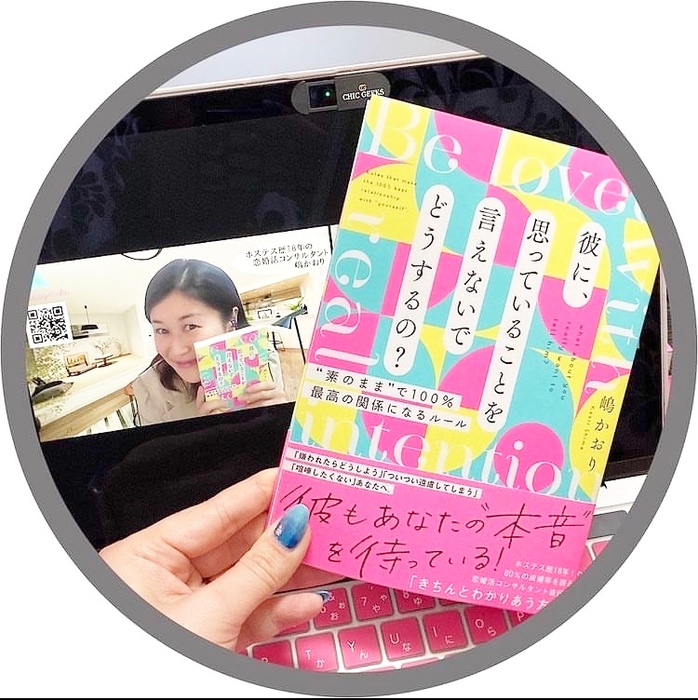 CHIC GEEKS
ホステス歴18年の
恋婚活コンサルタント
嶋かおり
Be loved
with
real
intention
Rules that make
the 100% best
relationship
with "yourself"
彼に、
思っていることを
言えないで
どうするの？
what about you
really want to
tell him?
嶋かおり
Kaori Shima
"素のまま"で100%
最高の関係になるルール
「嫌われたらどうしよう」「ついつい遠慮してしまう」
「喧嘩したくない」あなたへ
彼もあなたの"本音"
を待っている！
ホステス歴18年！
80%の成婚率を誇る
恋婚活コンサルタント直伝
「きちんとわかりあう方